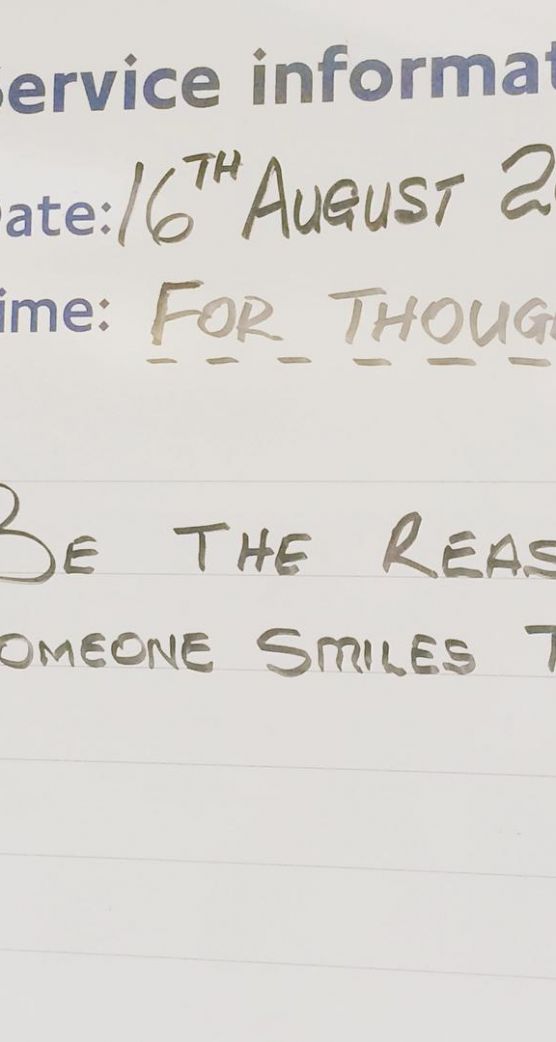 Service informat
ate: 16TH AUGUST 2
ime: FOR THOUG
BE THE REAS
OMEONE SMILES T